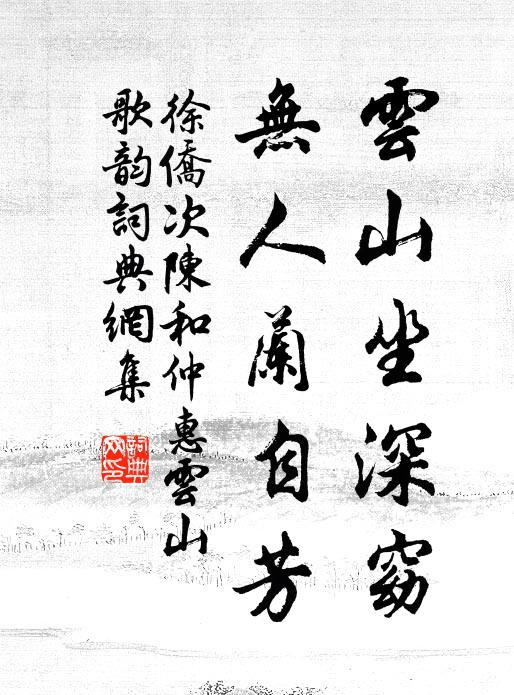 雲山坐深窈
無人蘭自芳
徐僑次陳和仲惠雲山
歌韵詞典網集
詞典网印